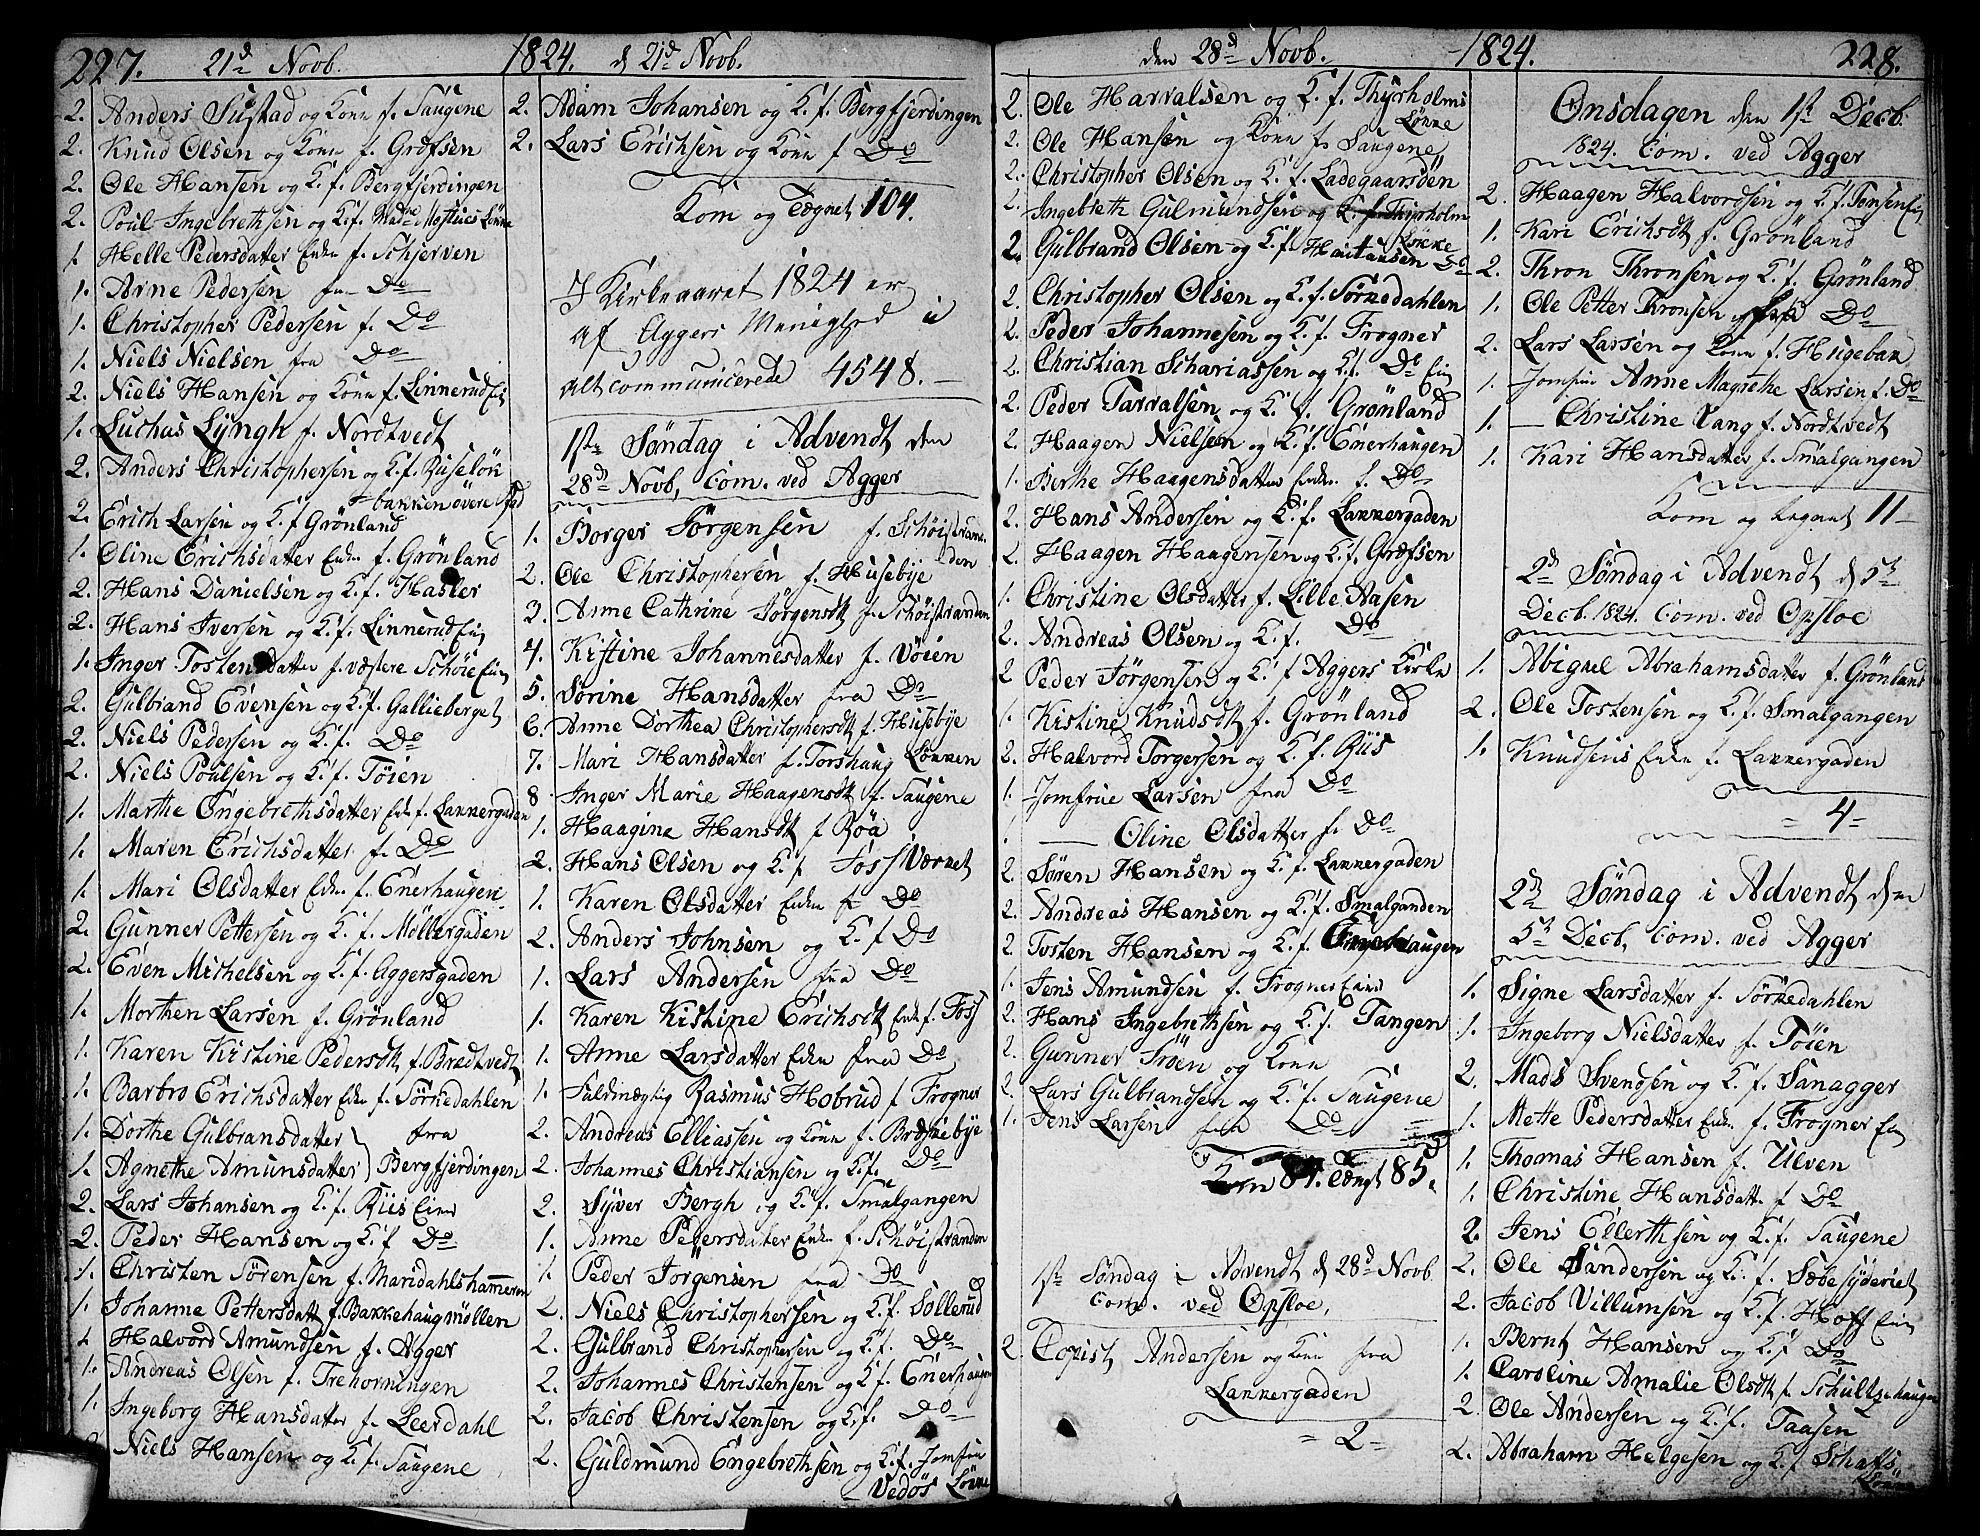 227. 21d Novb. 1824. d 21d Novb.
2. Anders Sustad og Konn f. Saugene
2. Knud Olsen og Konn f. Grefsen
2. Ole Hansen og K. f. Bergfjerdingen
2. Poul Ingebrethsen og K. f. Madme Løkke
1. Helle Pedersdatter Enke f. Schjerven
1. Arne Pedersen fra Do
1. Christopher Pedersen f. Do
1. Niels Nielsen fra Do
2. Niels Hansen og Konn f. Linnerud Eie
1. Luchas Lyngh f. Nordtvedt
2. Anders Christophersen og K. f. Ruseløk
banken øvere
2. Erich Larsen og K. f. Grønland
1. Oline Erichsdatter Enke f. Grønland
2. Hans Danielsen og K. f. Hasler
2. Hans Iversen og K. f. Linnerud Eie
1. Inger Tostensdatter f. væstere Schøie Eie
2. Gulbrand Evensen og K. f. Gallieberget
2. Niels Pedersen og K. f. Do
2. Niels Poulsen og K. f. Tøien
1. Marthe Engebrethsdatter Enk f. Lakkergaden
1. Maren Erichsdatter f. Do
1. Mari Olsdatter Enke f. Enerhaugen
2. Gunner Pettersen og K. f. Møllergaden
2. Even Michelsen og K. f. Aggersgaden
1. Morthen Larsen f. Grønland
1. Karen Kirstine Pedersdtr f. Bredtvedt
1. Barbro Erichsdatter Enke f. Sørkedahlen
1. Dorthe Gulbransdatter fra
1. Agnethe Amunsdatter Bergfjerdingen
2. Lars Johansen og K. f. Riis Eier
2. Peder Hansen og K. f. Do
1. Christen Sørensen f. Maridahlshammeren
1. Johanne Pettersdtr f. Bakkehaugmøllen
1 Halvord Amundsen f. Agger
1. Andreas Olsen f. Trehorningen
1. Ingeborg Hansdatter f. Leerdahl
2 Niels Hansen og K. f. Saugene
2. Adam Johansen og K. f. Bergfjerdingen
2. Lars Erichsen og Konn f Do
Kom og Tegnet 104.
I Kirkeaaret 1824 er
af Aggers Menighed i
alt communicerede 4548.
1ste Søndag i Advendt den
28d Novb, Com. ved Agger
1. Borger Jørgensen f. Schøistran-
den
2. Ole Christophersen f. Husebye
3. Anne Cathrine Jørgensdtr f. Schøistranden
4. Kirstine Johannesdatter f. Vøien
5. Sørine Hansdatter fra Do
6. Anne Dorthea Christophersdtr f. Husebye
7. Mari Hansdatter f. Torshaug Løkken
8 Inger Marie Haagensdtr f. Saugene
1. Haagine Hansdtr f Røa
2. Hans Olsen og K. f Foss Værket
1. Karen Olsdatter Enke f Do
2. Anders Johnsen og K. f Do
1. Lars Andersen fra Do
1. Karen Kirstine Erichsdtr Enke f. Foss
1. Anne Larsdatter Enke fra Do
1. Fuldmægtig Rasmus Hobrud f Frogner
2. Andreas Elliassen og Konn f. Brøskebye
2. Johannes Christiansen og K. f. Do
2. Syver Bergh og K. f. Smalgangen
1. Anne Pedersdatter Enke f. Schøistranden
1. Peder Jørgensen fra Do
2. Niels Christophersen og K. f. Sollerud
2. Gulbrand Christophersen og K. f. Do
2. Johannes Christensen og K. f. Enerhaugen
2. Jacob Christensen og K. f. Do
2. Guldmund Engebrethsen og K. f. Jomfru
Vedøs Løkke
den 28d Novb. 1824. 228.
2. Ole Harvalsen og K. f. Thyrholms
Løkke
2. Ole Hansen og Konn fr Saugene
2. Christopher Olsen og K. f. Ladegaarsøen
2. Ingebreth Gulmundsen og K. f. Thyrholm
Løkke
2. Gulbrand Olsen og K. f. Do
2. Christopher Olsen og K. f. Sørkedahlen
2. Peder Johannesen og K. f. Frogner
2. Christian Schariassen og K. f. Do Eie
2. Peder Tarvalsen og K. f. Grønland
2. Haagen Nielsen og K. f. Enerhaugen
1. Berthe Haagensdatter Enke f. Do
2. Hans Andersen og K. f. Lakkergaden
2. Haagen Haagensen og K. f. Græfsen
1. Christine Olsdatter f. Lille Aasen
2. Andreas Olsen og K. f. Do
2 Peder Jørgensen og K. f Aggers Kirke
1. Kirstine Knudsdtr f. Grønland
2. Halvord Torgersen og K. f. Riis
1. Jomfrue Larsen fra Do
1 — Oline Olsdatter f. Do
2. Søren Hansen og K. f. Lakkergaden
2. Andreas Hansen og K. f. Smalganden
2. Tosten Hansen og K. f. Enerhaugen
1. Jens Amundsen f. Frogner Eier
2. Hans Ingebrethsen og K. f. Tangen
2. Gunner Troen og Konn
2. Lars Gulbrandsen og K. f. Saugene
1. Jens Larsen fra Do
Kom 84. Tegnt 85.
1ste Søndag i Advendt d 28d Novb
Com. ved Opsloe,
2 Copist Andersen og Konn fra
Lakkergaden
= 2 =
Onsdagen den 1ste Decb.
1824. Com. ved Agger
2. Haagen Halvordsen og K. f. Tonsen Eie
1. Kari Erichsdtr f. Grønland
2. Thron Thronsen og K. f. Grønland
1. Ole Petter Thronsen fra Do
2. Lars Larsen og Konn f. Hugebak
1. Jomfrue Anne Magrethe Larsen f. Do
1. — Christine Lang f. Nordtvedt
1. Kari Hansdatter f. Smalgangen
Kom og tegnet 11 —
2den Søndag i Advendt d 5te
Decb. 1824. Com. ved Opsloe
1. Abiguel Abrahamsdatter f. Grønland
2. Ole Tostensen og K. f. Smalgangen
1. Knudsens Enke f. Lakkergaden
= 4 =
2den Søndag i Advendt den
5te Decb, Com. ved Agger
1. Signe Larsdatter f. Sørkedahlen
1. Ingeborg Nielsdatter f. Tøien
2. Mads Svendsen og K. f. Sanagger
1. Mette Pedersdatter Enke f. Frogner Eie
1. Thomas Hansen f. Ulven
1. Christine Hansdatter f Do
2. Jens Ellerthsen og K. f. Saugene
2. Ole Sandersen og K. f. Sæbesyderiet
2. Jacob Villumsen og K. f. Hoff Eie
1. Bernt Hansen og K. f Do
1. Caroline Amalie Olsdtr f. Schultzehaugen
2. Ole Andersen og K. f. Taasen
2. Abraham Helgesen og K. f Schafts
Løkke